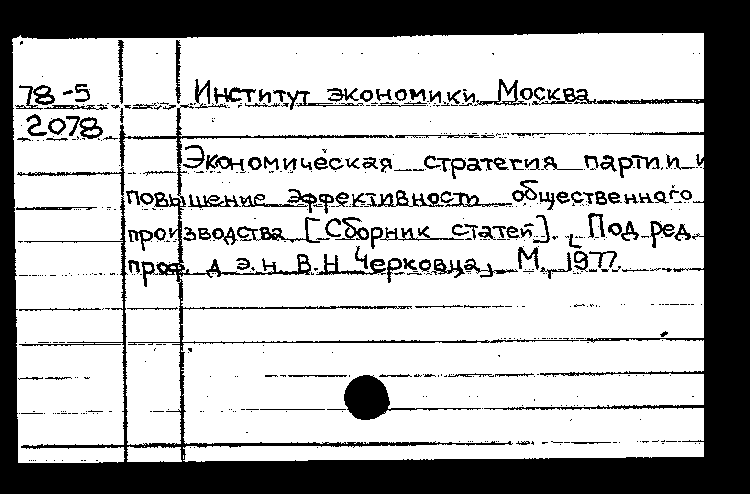 78-5 Институт экономики Москва
2078
Экономическая стратегия партии и
повышение эффективности общественного
производства [Сборник статей]. Под ред.
проф. д э.н. В.Н Черковца, М., 1977.